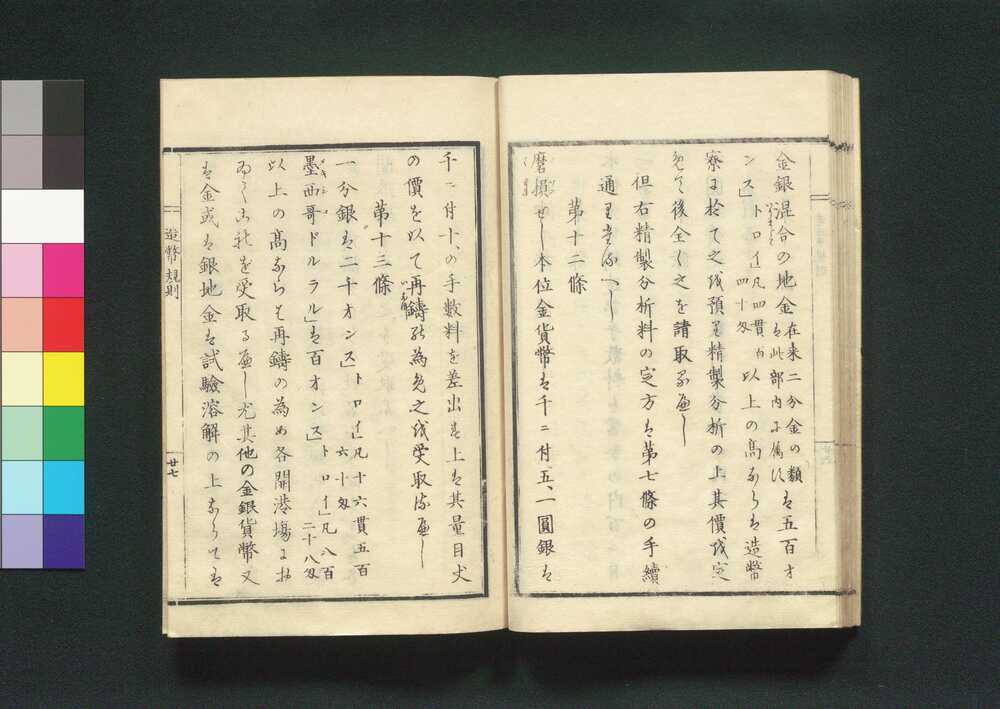 金銀混合の地金在来二分金の類は此部内に属すは五百オ
ンス」トロイ」凡四貫百四十匁以上の高ならは造幣
寮に於て之を預り精製分析の上其價を定
めて後全く之を請取るへし
但右精製分析料の定方は第七條の手續
通りたるへし
第十二條
磨損せし本位金貨幣は千ニ付五、一圓銀は
千ニ付十、の手數料を差出す上は其量目丈
の價を以て再鑄の為め之を受取るへし
第十三條
一分銀は二千オンス」トロイ」凡十六貫五百六十匁
墨西哥ドルラル」は百オンス」トロイ」凡八百二十八匁
以上の高ならは再鑄の為め各開港場に於
之を受取るへし尤其他の金銀貨幣又
は金或は銀地金は試驗溶解の上ならては
造幣規則
廿七